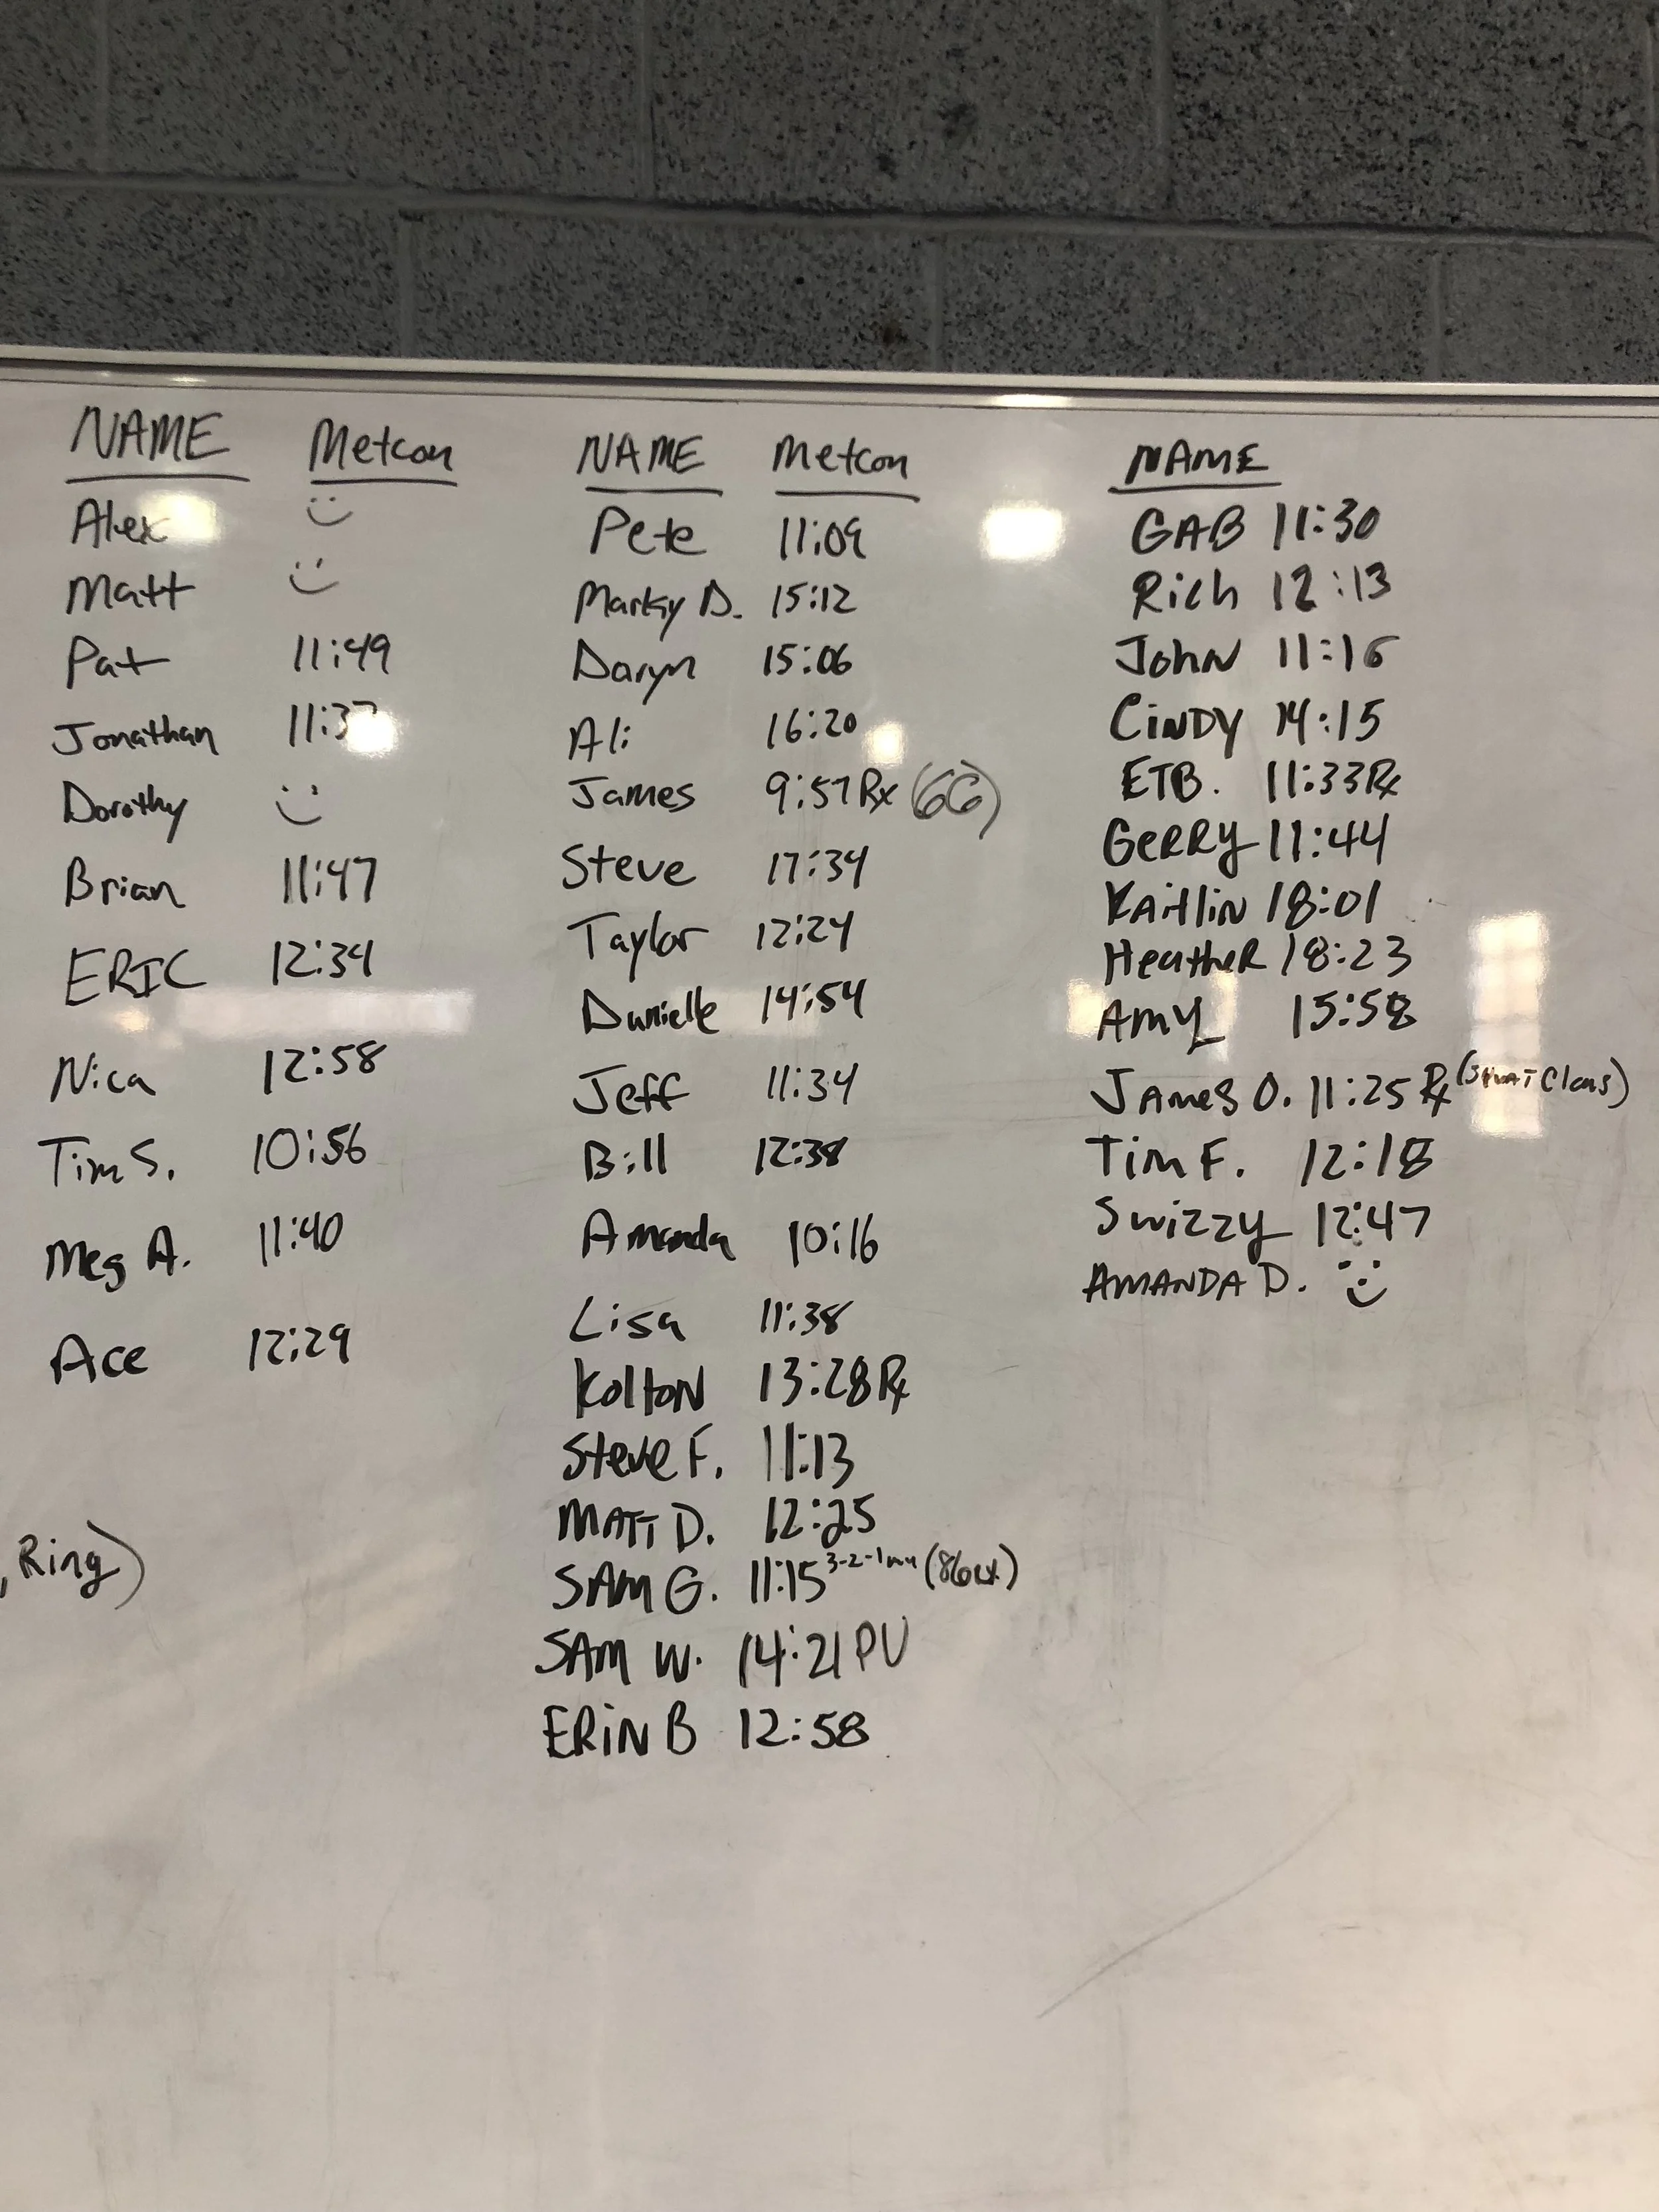 NAME Metcon
Alex
Matt
Pat 11:49
Jonathan
Dorothy
Brian 11:47
ERIC 12:34
Nica 12:58
Tim S. 10:56
Meg A. 11:40
Ace 12:29
, Ring)
NAME Metcon
Pete 11:09
Marky D. 15:12
Daryn 15:06
Ali 16:20
James 9:57 Rx
Steve 17:34
Taylor 12:24
Danielle 14:54
Jeff 11:34
Bill 12:38
Amanda 10:16
Lisa 11:38
Kolton 13:28 Rx
Steve F. 11:13
MATT D. 12:25
SAM G. 11:15 3-2-1
SAM W. 14:21 PU
ERiN B 12:58
NAME
GAB 11:30
Rich 12:13
John 11:16
CiNDY 14:15
ETB. 11:33 Rx
GeRRY 11:44
KAitlin 18:01
HeatheR 18:23
AMY 15:58
JAMES O. 11:25 Rx
Tim F. 12:18
Swizzy 12:47
AMANDA D.